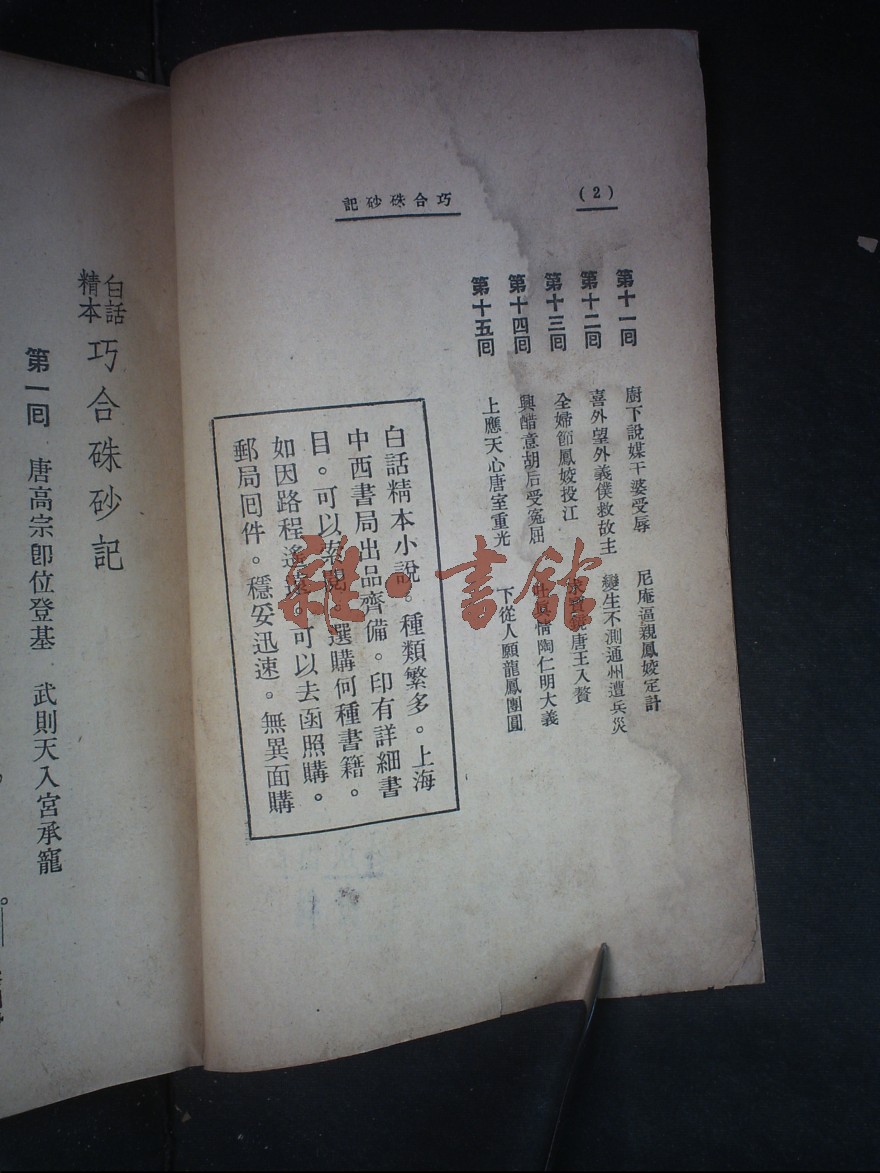 (2)
巧合硃砂記
第十一囘 廚下說媒干婆受辱 尼庵逼親鳳姣定計
第十二囘 喜外望外義僕救故主 變生不測通州遭兵災
第十三囘 全婦節鳳姣投江 求寶鏡唐王入贅
第十四囘 興醋意胡后受冤屈 吐眞情陶仁明大義
第十五囘 上應天心唐室重光 下從人願龍鳳團圓
白話精本小說。種類繁多。上海
中西書局出品齊備。印有詳細書
目。可以索閱。選購何種書籍。
如因路程遙遠。可以去函照購。
郵局囘件。穩妥迅速。無異面購
雜·書館
白話精本 巧合硃砂記
第一囘 唐高宗卽位登基 武則天入宮承寵